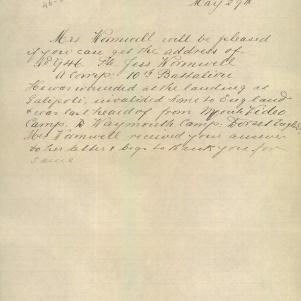 May 29th
Mrs Wornwell will be pleased
if you can get the address of
No 946 Jess Wornwell
A Comp. 10th Battalion
He was wounded at the landing at
Galipoli, invalided home to England
& was last heard of from Monte Video
Camp. Waymouth Camp. Dorset Engl
Mrs Wornwell received your answer
to her letter & begs to thank you for
same